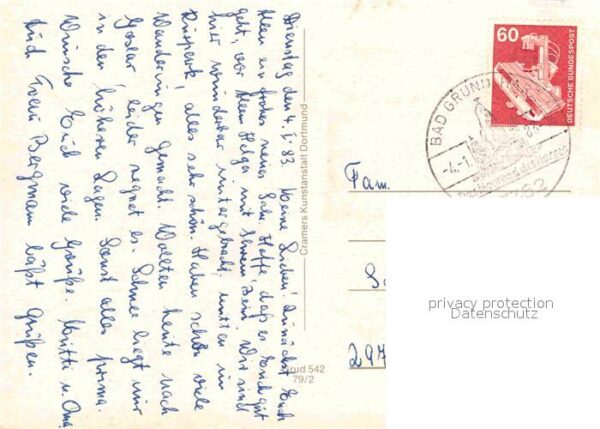 Dienstag, den 4.1.83. Meine Lieben! Zunächst Euch
allen ein frohes neues Jahr. Hoffe, daß es Euch gut
geht, vor allem Helga mit ihrem Bein. Wir sind
hier wunderbar untergebracht, mitten im
Kurpark, alles sehr schön. Haben schon viele
Wanderungen gemacht. Wollten heute nach
Goslar, leider regnet es. Schnee liegt nur
in den höheren Lagen. Sonst alles prima.
Wünsche Euch viele Grüße. u. Oma
Auch Frau Bergmann läßt grüßen.
Cramers Kunstanstalt Dortmund
542
79/2
60
DEUTSCHE BUNDESPOST
BAD GRUND
-4.-1.
Fam.
privacy protection
Datenschutz